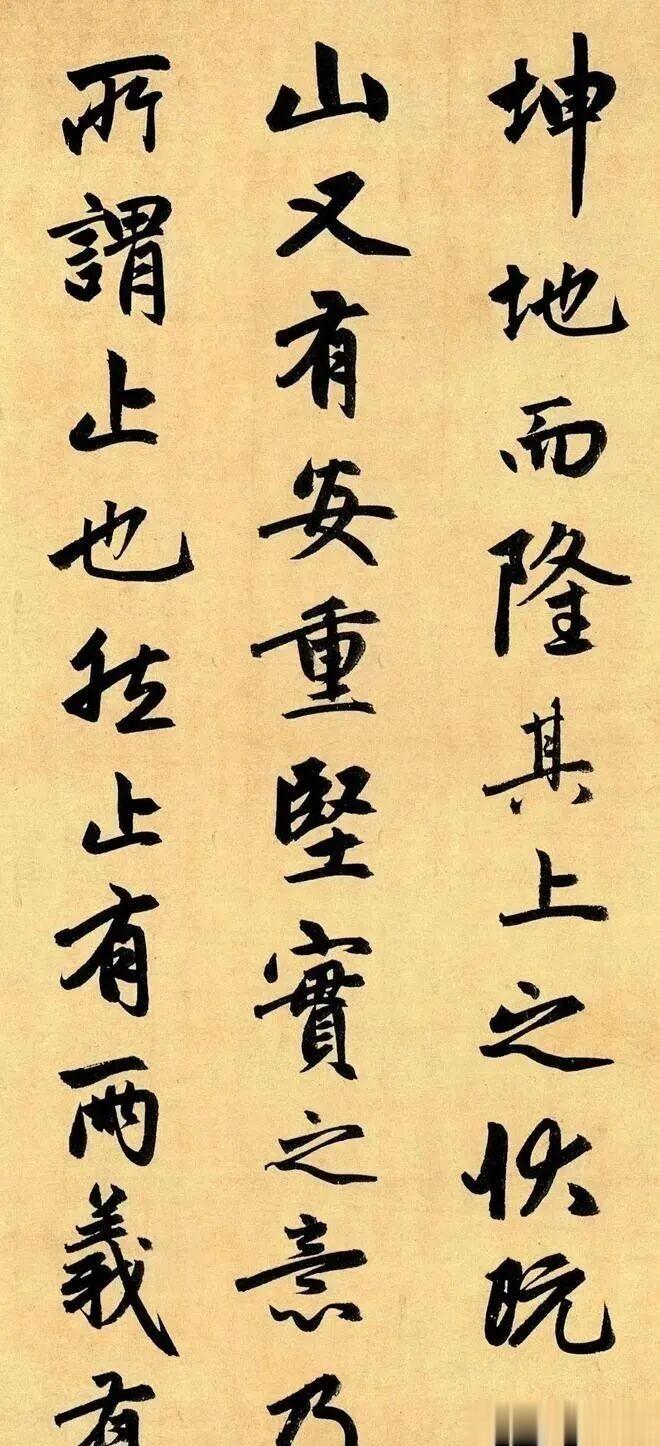 坤地而隆其上之状既
山又有安重堅實之意乃
所謂止也然止有兩義有